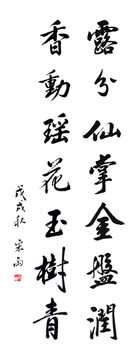 露分仙掌金盤潤
香動瑤花玉樹青
戊戌秋 宋雨